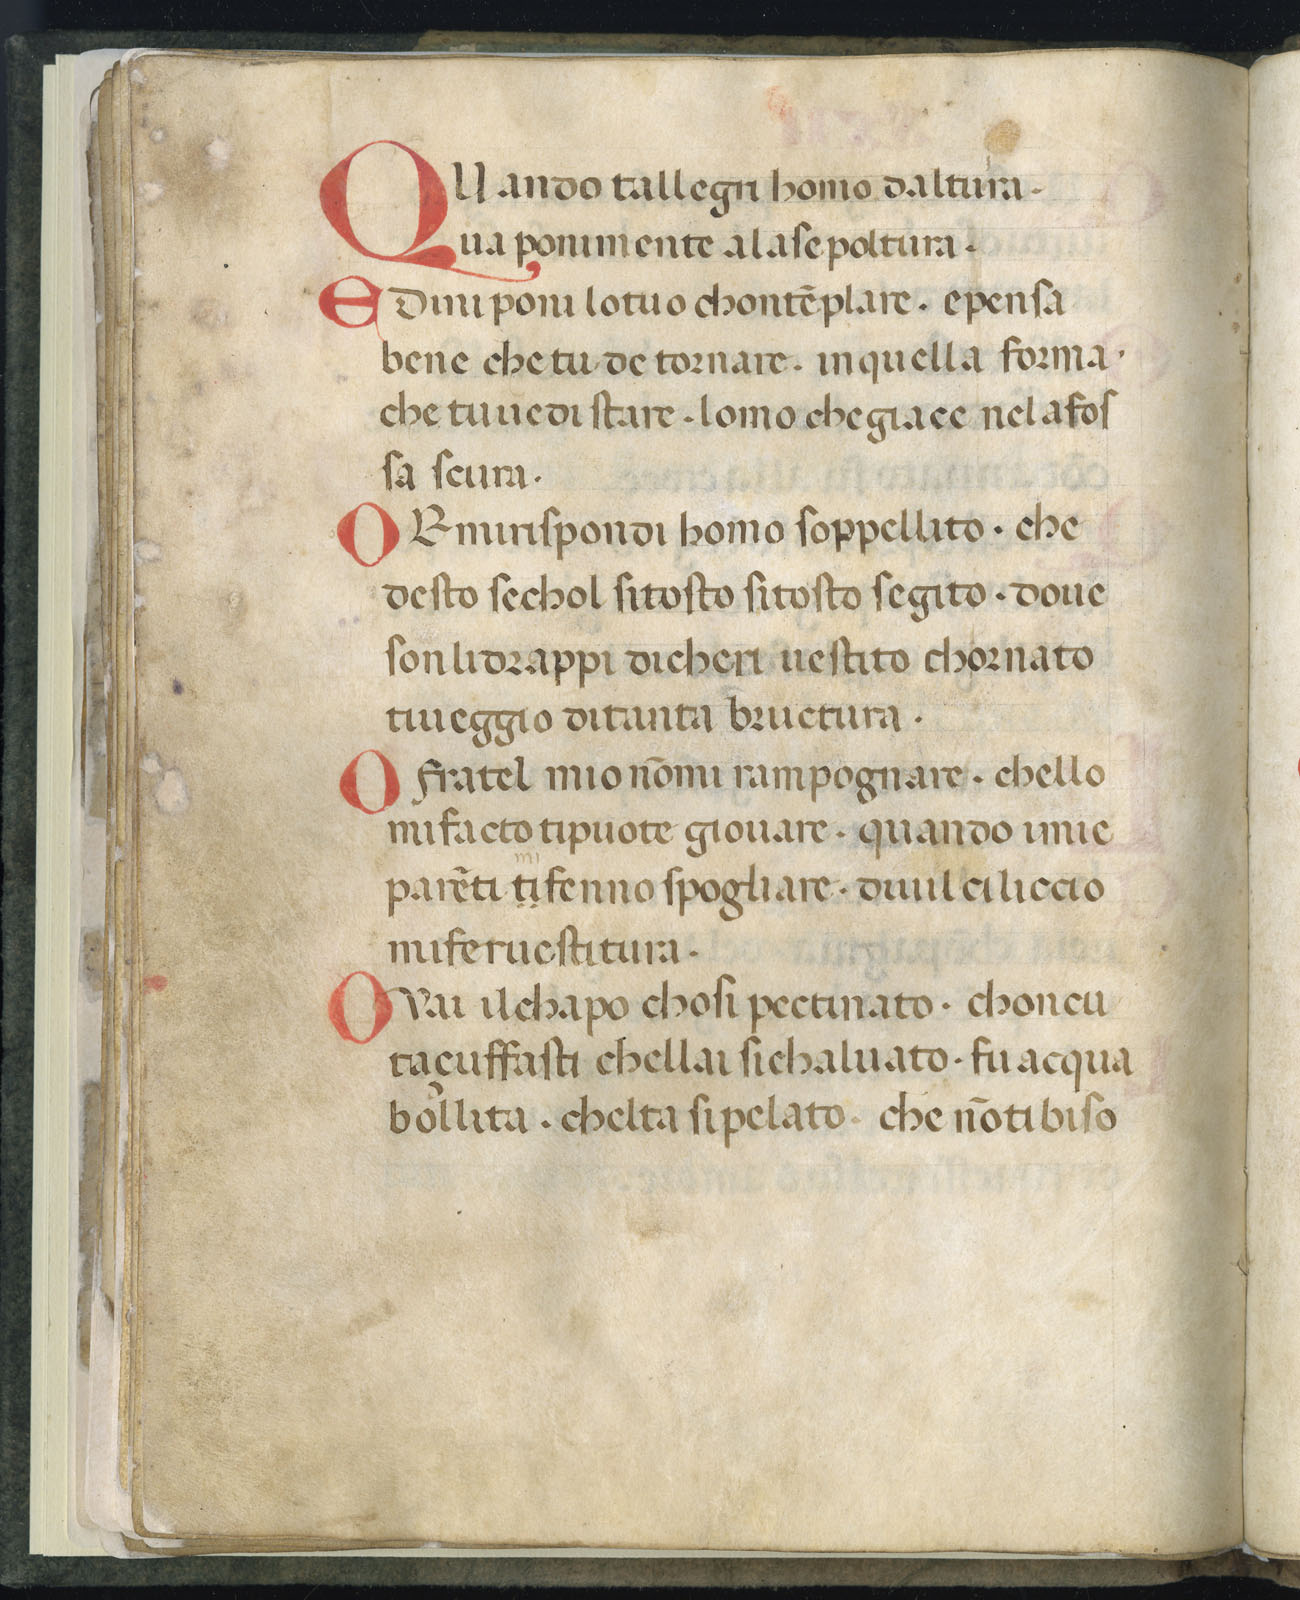 QUando tallegri homo daltura.
Qua ponimente alasepoltura.
Edivi poni lotuo chontēplare. epensa
bene chetu de tornare. inquella forma.
che tuvedi stare. lomo chegiace nelafos
sa scura.
OR mirispondi homo soppellito. che
desto sechol sitosto sitosto segito. dove
son lidrappi dicheri vestito chornato
tiveggio ditanta bructura.
O fratel mio nōmi rampognare. chello
mifacto tipuote giovare. quando imie
mi
parēti ti fenno spogliare. divil ciliccio
mifer vestitura.
OVai ilchapo chosi pectinato. choncu
tacuffasti chellai sichalvato. fu acqua
bollita. chelta sipelato. che nōti biso